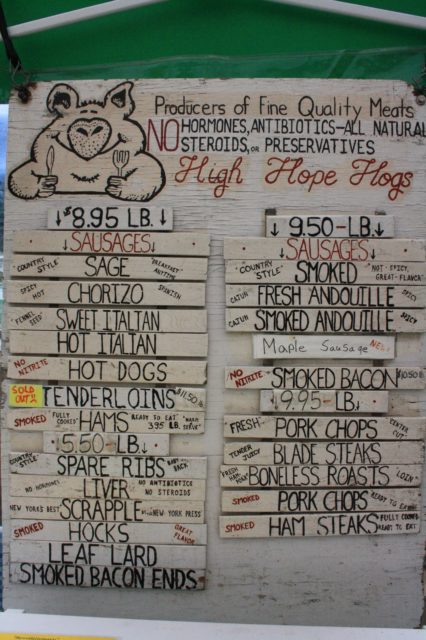 Producers of Fine Quality Meats
NO HORMONES, ANTIBIOTICS-ALL NATURAL
STEROIDS, OR PRESERVATIVES
High Hope Hogs
↓$8.95 LB.↓
↓SAUSAGES↓
"COUNTRY STYLE" SAGE BREAKFAST ANYTIME
SPICY HOT CHORIZO SPANISH
"FENNEL SEED" SWEET ITALIAN
HOT ITALIAN
NO NITRITE HOT DOGS
SOLD OUT TENDERLOINS $11.50 lb
SMOKED "FULLY COOKED" HAMS READY TO EAT 3.95 LB.
↓5.50-LB.↓
COUNTRY STYLE SPARE RIBS BABY BACK
NO HORMONES LIVER NO ANTIBIOTICS NO STEROIDS
NEW YORKS BEST SCRAPPLE NEW-YORK PRESS
SMOKED HOCKS GREAT FLAVOR
LEAF LARD
SMOKED BACON ENDS
↓ 9.50-LB.↓
↓SAUSAGES↓
"COUNTRY STYLE" SMOKED "NOT-SPICY, GREAT-FLAVOR"
CAJUN FRESH ANDOUILLE SPICY
CAJUN SMOKED ANDOUILLE SPICY
Maple Sausage NEW
NO NITRITE SMOKED BACON $10.50 lb
↓9.95-LB.↓
"FRESH" PORK CHOPS CENTER CUT
TENDER JUICY BLADE STEAKS
FRESH HAM BONELESS ROASTS LOIN
SMOKED PORK CHOPS READY TO EAT
SMOKED HAM STEAKS FULLY COOKED READY TO EAT